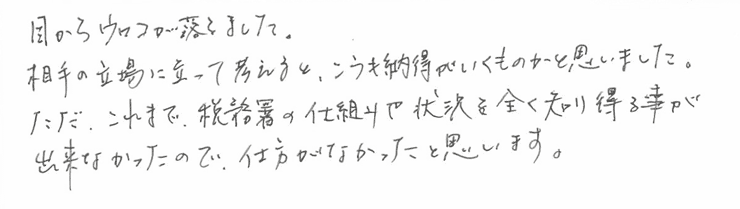 目からウロコが落ちました。
相手の立場に立って考えると、こうも納得がいくものかと思いました。
ただ、これまで、税務署の仕組みや状況を全く知り得る事が
出来なかったので、仕方がなかったと思います。